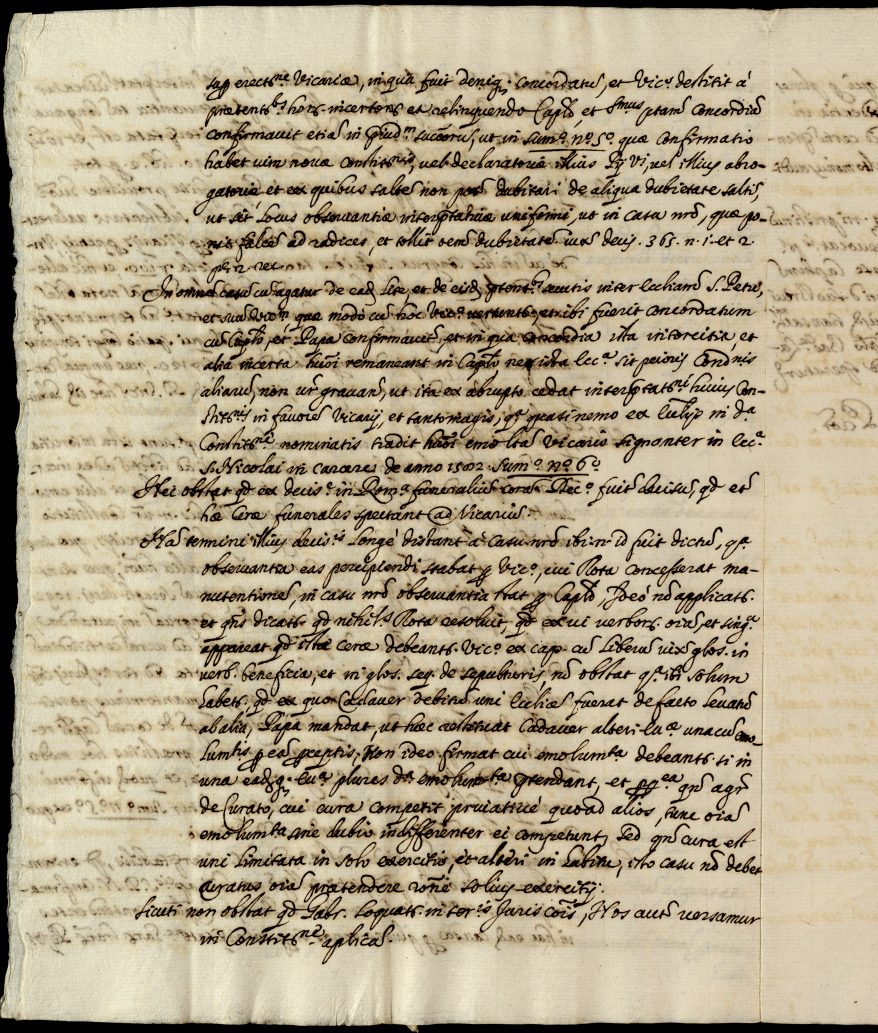 erect.ne Vicariæ, in qua fuit deniq. concordatũ, et Vic.s destitit à
prætent.bs hor. incertor. ea relinquendo Cap.lo et S.mus p.tam concordiã
confirmavit etiã in successorũ, ut in sum.o n.o 5.o quæ confirmatio
habet vim novæ constit.nis, vel declaratoriæ illius Pij Vi, vel illius abro-
gatoriæ et ex quibus saltẽ non põt dubitari de aliqua dubietate saltẽ,
ut sit locus observantiæ interp.tativæ uniformi, ut in casu nrõ, quæ po-
nit falcẽ ad radices, et tollit oem dubietatẽ iuxta decis. 365. n. 1. et 2.
p. 12. rec.
In omnẽ casũ cũ agatur de eadẽ lite et de eisdẽ inter Eccliam S. Petri,
et suũ Vic.m quæ modò cũ hoc Vic.o et ibi fuerit concordatum
cũ Cap.lo, et Papa confirmavit, et in qua concordia ista intercisa, et
alia incerta remaneant in Cap.lo nec ista Ecc.a sit peioris cond.nis
aliarũ, non vr gravari, ut ita ex abrupto cedat interp.tat.ni huius Con-
stit.nis in favorẽ Vicarij, et tanto magis, q.a quasi nemo ex in d.a
Constit.ne nominatis tradit emolta Vicario signanter in Ecc.a
S. Nicolai in Carcere de anno 1502. Sum.o n.o 6.o
Nec obstat qd ex decis.e in Rom.a funeralium corã fuit decisũ, qd et
hæ ceræ funerales spectant ad Vicariũ.
Nã termini illius decis.is longè distant à casu nrõ ibi .n. id fuit dictũ, q.a
observantia eas percipiendi stabat p Vic.o, cui Rota concesserat ma-
nutentionẽ, in casu nrõ observantia stat p Cap.lo, Ideò nõ applicat.r
et dicat.r qd nihil.s Rota resolvit, qd ex vi verbor. oia, et sing.a
appareat qd istæ ceræ debeant.r Vic.o ex cap. cũ liberum vix glos. in
verb. beneficia, et in glos. seq. de sepulturis, nõ obstat q.a ibi solum
habet.r, qd ex quo Cadaver debitũ uni Eccliæ fuerat de facto levatũ
ab alia, Papa mandat, ut hæc restituat Cadaver alteri unacũ emo-
lum.tis p ea p.ceptis, Non ideo firmat cui emolum.ta debeant.r si in
una eadq. plures d.a emolum.ta p.tendant, et qñ agr
de Curato, cui cura competit privativè quoad alios, tunc oia
emolum.ta sine dubio indifferenter ei competunt, Sed qñ cura est
uni limitata in solo exercitio, et alteri in habitu, isto casu nõ debet
Curatus oia prætendere rõne solius exercitij.
Sicuti non obstat qd Gabr. loquat.r in ter.is Juris cõis, Nos autẽ versamur
in Constit.ne aplica.